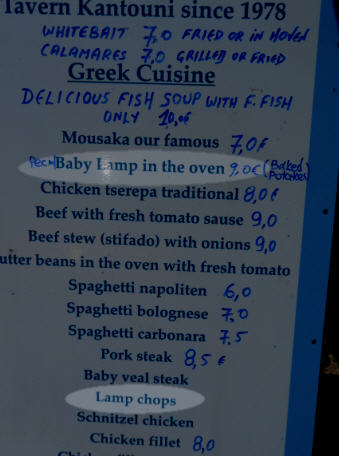 Tavern Kantouni since 1978
WHITEBAIT 7,0 FRIED OR IN HOVEN
CALAMARES 7,0 GRILLED OR FRIED
Greek Cuisine
DELICIOUS FISH SOUP WITH F. FISH
ONLY 10,0€
Mousaka our famous 7,0€
Baby Lamp in the oven 9,0€ (Baked Potatoes)
Chicken tserepa traditional 8,0€
Beef with fresh tomato sause 9,0
Beef stew (stifado) with onions 9,0
utter beans in the oven with fresh tomato
Spaghetti napoliten 6,0
Spaghetti bolognese 7,0
Spaghetti carbonara 7.5
Pork steak 8,5 €
Baby veal steak
Lamp chops
Schnitzel chicken
Chicken fillet 8,0